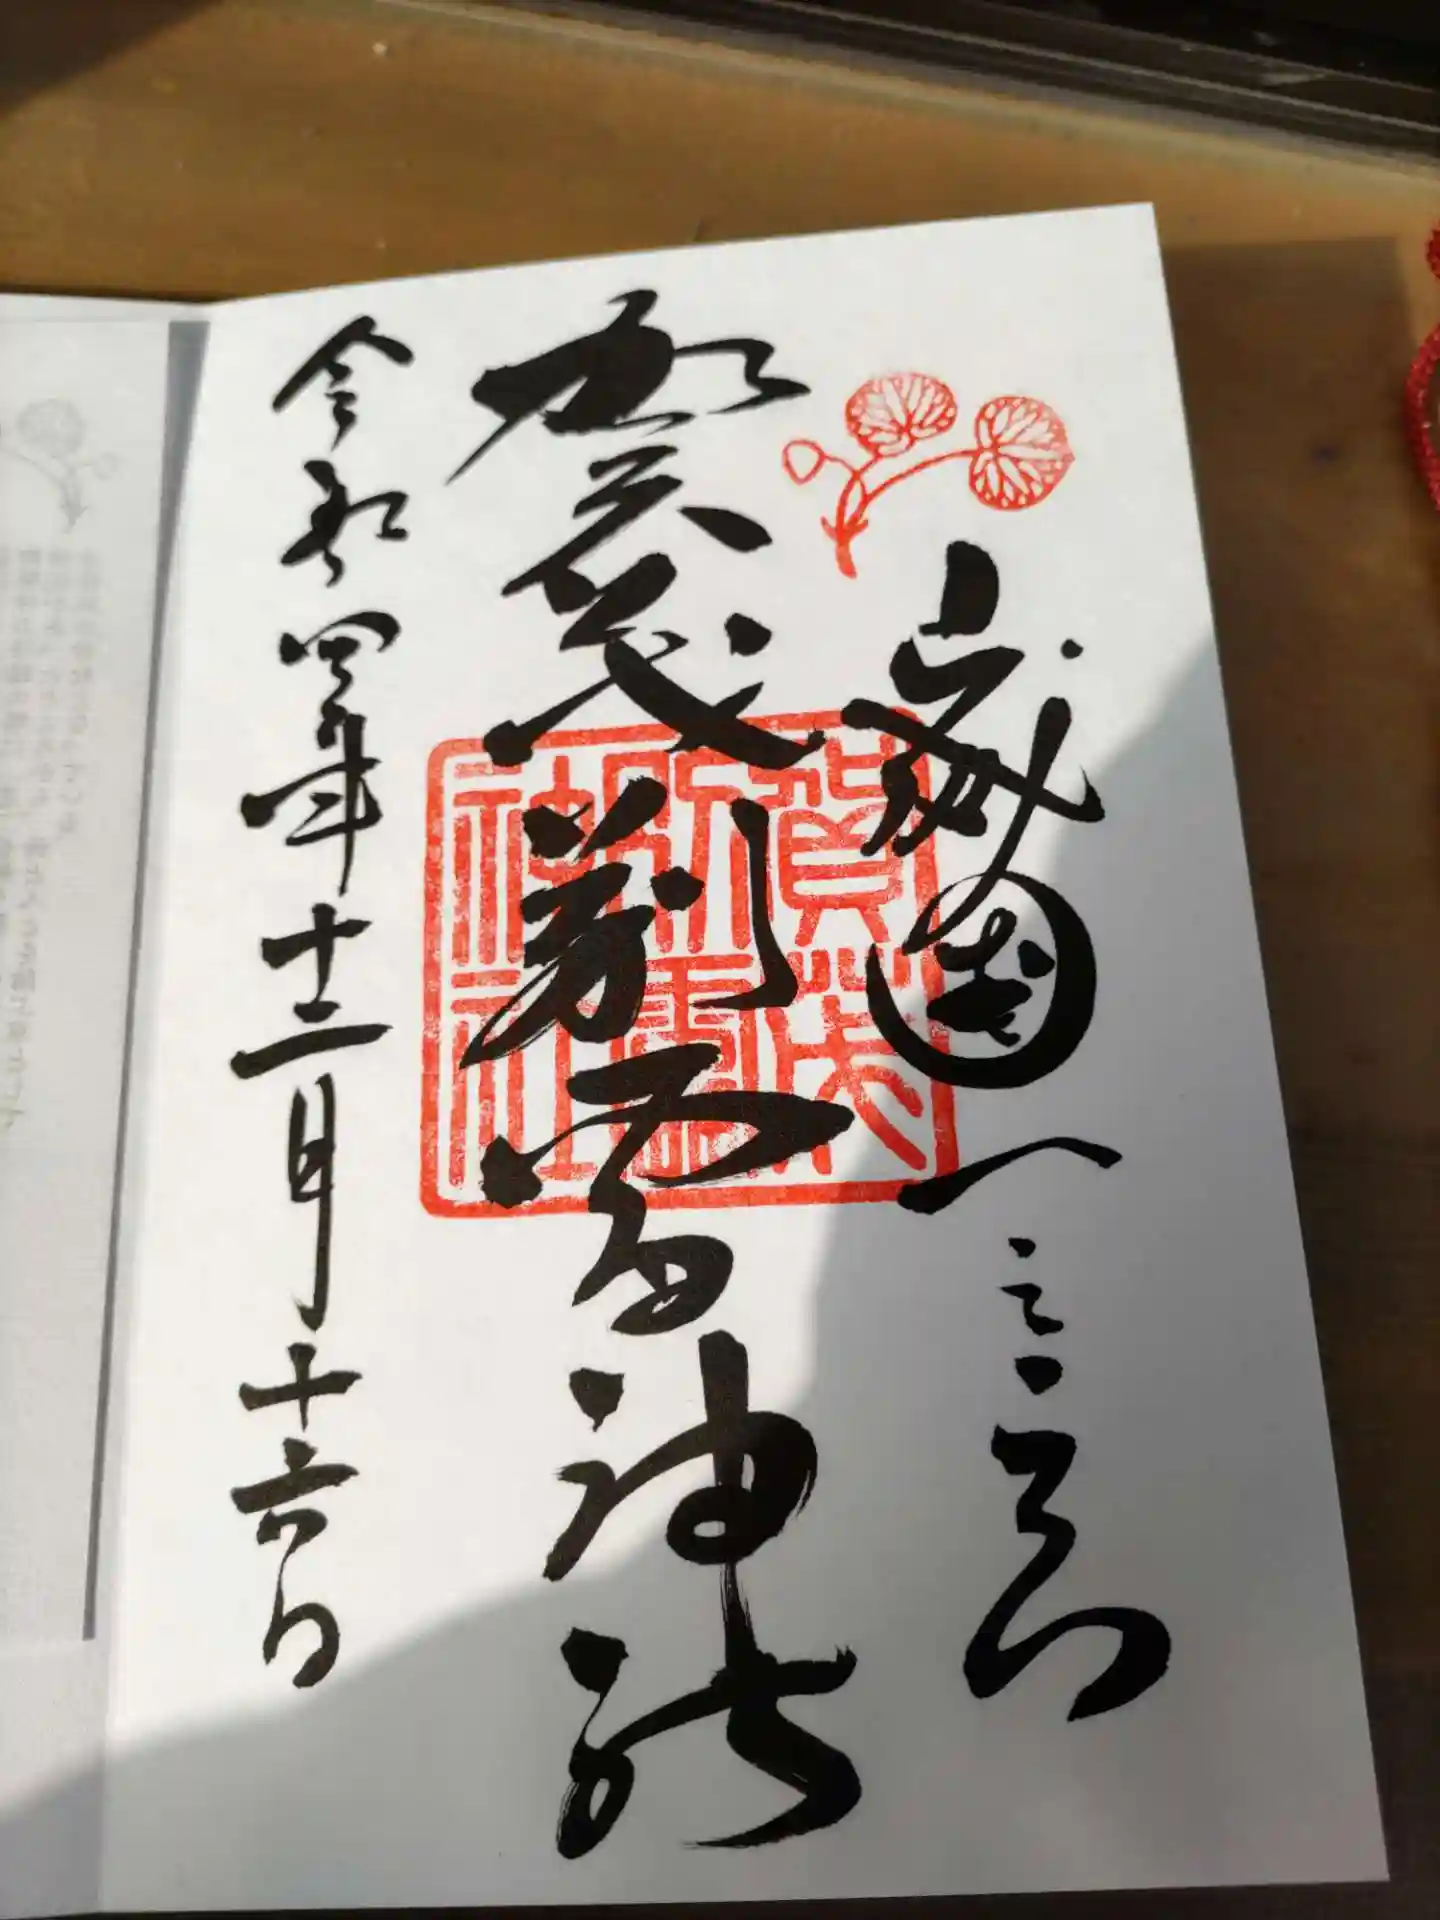 山城國一之宮
賀茂別雷神社
令和四年十二月十六日
賀茂
別雷
神社